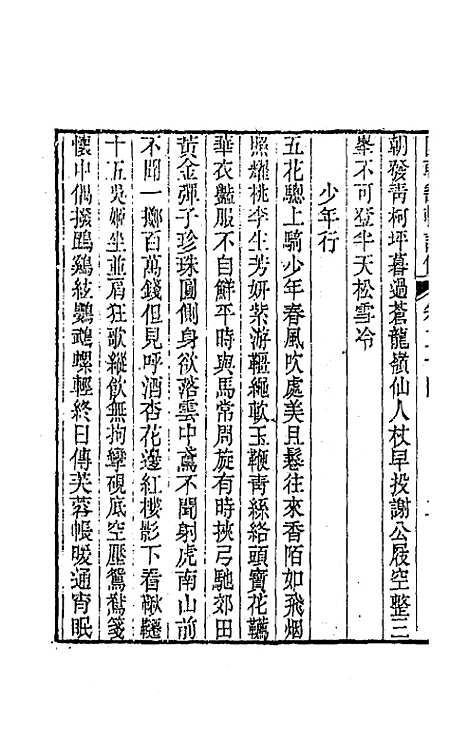 朝發靑柯坪暮過蒼龍嶺仙人杖早投謝公屐空整三
峯不可登半天松雪冷
少年行
五花驄上騎少年春風吹處美且鬈往來香陌如飛烟
照耀桃李生芳妍紫游韁繩軟玉鞭靑絲絡頭寶花韉
華衣豔服不自鮮平時與馬常周旋有時挾弓馳郊田
黃金彈子珍珠圓側身欲落雲中鳶不聞射虎南山前
不聞一擲百萬錢但見呼酒杏花邊紅樓影下看鞦韆
十五吳姬坐並肩狂歌縱飮無拘攣硯底空壓鴛鴦箋
懷中偶撥鵾鷄絃鸚鵡螺輕終日傳芙蓉帳暖通宵眠